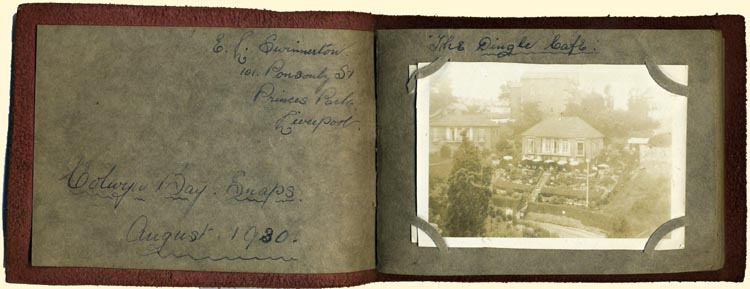 E. R. Swinnerton
101. Ponsonby St
Princes Park
Liverpool.
Colwyn Bay. Snaps.
August. 1930.
"The Dingle Café."